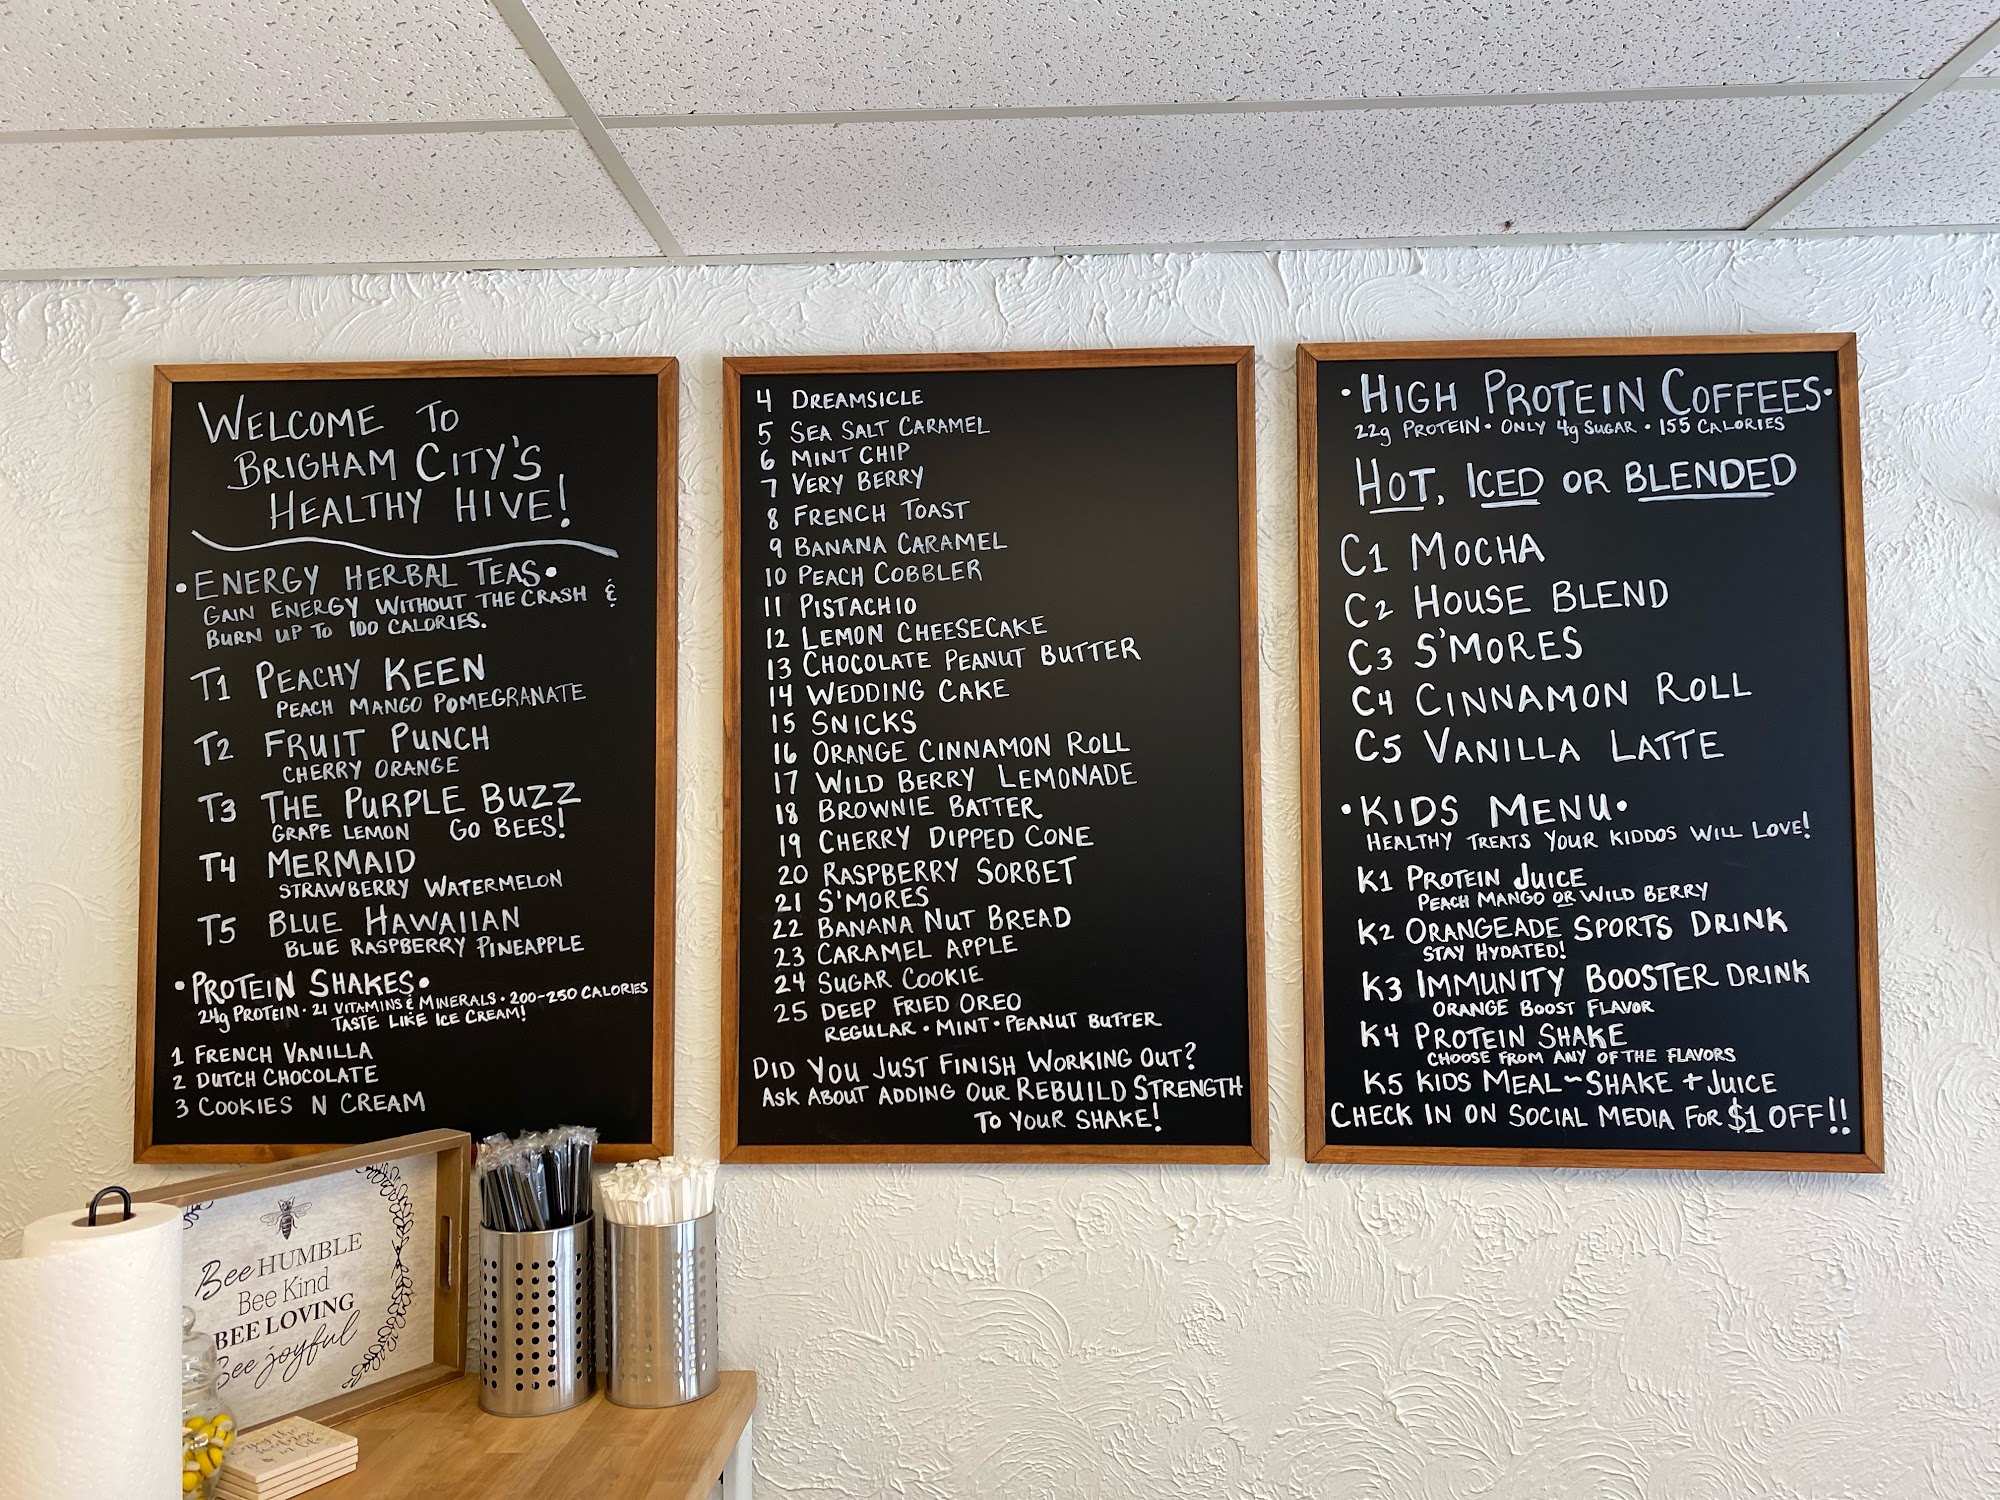 WELCOME TO
BRIGHAM CITY'S
HEALTHY HIVE!
• ENERGY HERBAL TEAS •
GAIN ENERGY WITHOUT THE CRASH &
BURN UP TO 100 CALORIES.
T1 PEACHY KEEN
PEACH MANGO POMEGRANATE
T2 FRUIT PUNCH
CHERRY ORANGE
T3 THE PURPLE BUZZ
GRAPE LEMON GO BEES!
T4 MERMAID
STRAWBERRY WATERMELON
T5 BLUE HAWAIIAN
BLUE RASPBERRY PINEAPPLE
• PROTEIN SHAKES •
24g PROTEIN • 21 VITAMINS & MINERALS • 200-250 CALORIES
TASTE LIKE ICE CREAM!
1 FRENCH VANILLA
2 DUTCH CHOCOLATE
3 COOKIES N CREAM
4 DREAMSICLE
5 SEA SALT CARAMEL
6 MINT CHIP
7 VERY BERRY
8 FRENCH TOAST
9 BANANA CARAMEL
10 PEACH COBBLER
11 PISTACHIO
12 LEMON CHEESECAKE
13 CHOCOLATE PEANUT BUTTER
14 WEDDING CAKE
15 SNICKS
16 ORANGE CINNAMON ROLL
17 WILD BERRY LEMONADE
18 BROWNIE BATTER
19 CHERRY DIPPED CONE
20 RASPBERRY SORBET
21 S'MORES
22 BANANA NUT BREAD
23 CARAMEL APPLE
24 SUGAR COOKIE
25 DEEP FRIED OREO
REGULAR • MINT • PEANUT BUTTER
DID YOU JUST FINISH WORKING OUT?
ASK ABOUT ADDING OUR REBUILD STRENGTH
TO YOUR SHAKE!
• HIGH PROTEIN COFFEES •
22g PROTEIN • ONLY 4g SUGAR • 155 CALORIES
HOT, ICED OR BLENDED
C1 MOCHA
C2 HOUSE BLEND
C3 S'MORES
C4 CINNAMON ROLL
C5 VANILLA LATTE
• KIDS MENU •
HEALTHY TREATS YOUR KIDDOS WILL LOVE!
K1 PROTEIN JUICE
PEACH MANGO OR WILD BERRY
K2 ORANGEADE SPORTS DRINK
STAY HYDATED!
K3 IMMUNITY BOOSTER DRINK
ORANGE BOOST FLAVOR
K4 PROTEIN SHAKE
CHOOSE FROM ANY OF THE FLAVORS
K5 KIDS MEAL ~ SHAKE + JUICE
CHECK IN ON SOCIAL MEDIA FOR $1 OFF!!
Bee HUMBLE
Bee Kind
BEE LOVING
Bee joyful